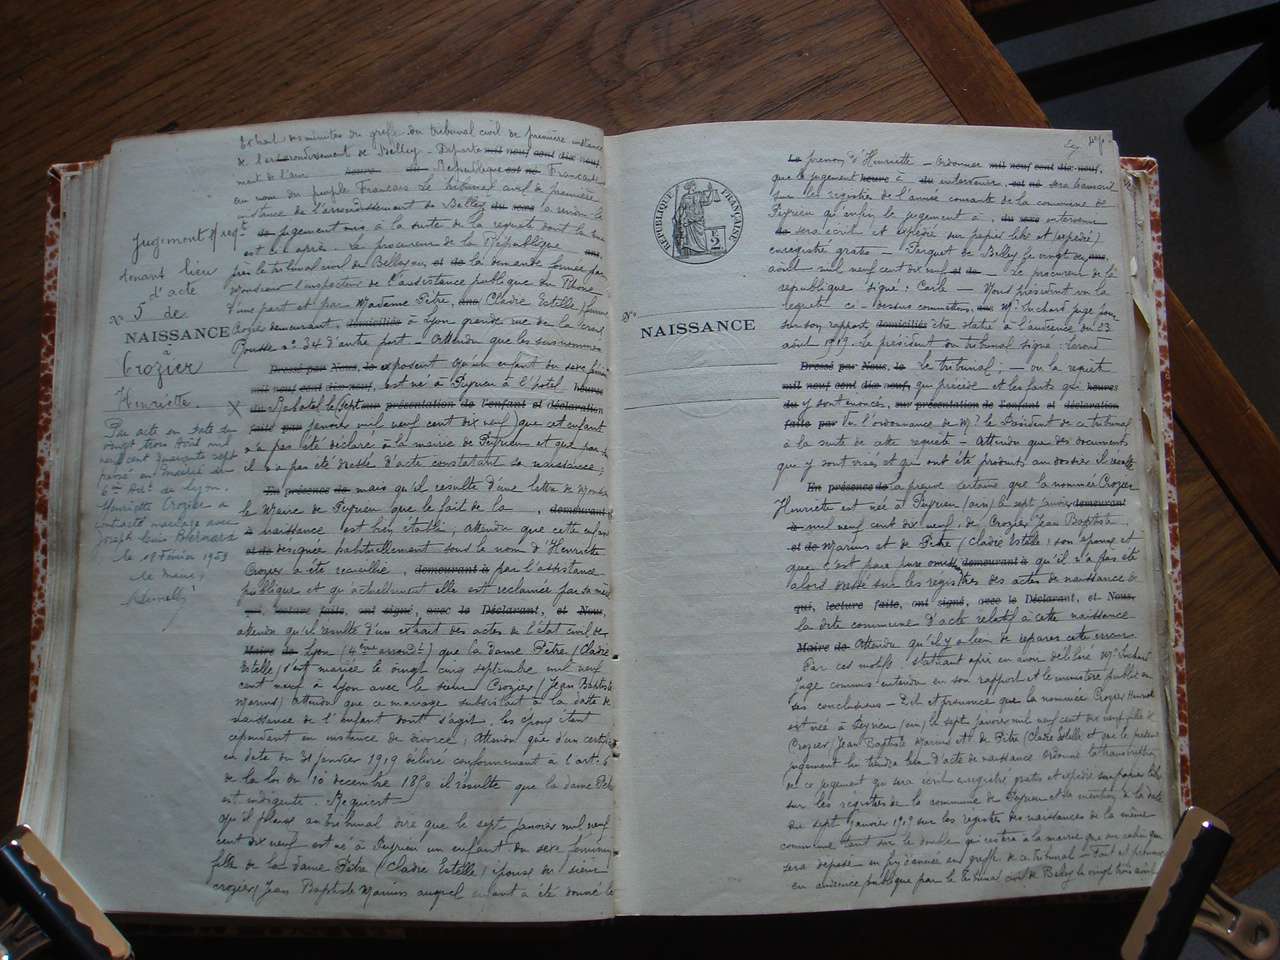 Extrait des minutes du greffe du tribunal civil de première instance
de l'arrondissement de Belley - Départe mil neuf cent dix neuf,
ment de l'ain heure de République est né Française
au nom du peuple Français Le tribunal civil de première
instance de l'arrondissement de Belley du sexe a rendu le
de jugement mis à la suite de la requête dont la
est ci après. Le procureur de la République
près le tribunal civil de Belley et de la demande formée par
Monsieur l'inspecteur de l'assistance publique du Rhône
d'une part et par Madame Pitre, Cladie Estelle femme
Crozier demeurant, domiciliés à Lyon grande rue de la Croix
Rousse n° 34 d'autre part - Attendu que les susnommés
Dressé par Nous, le exposent qu'un enfant du sexe
mil neuf cent dix neuf, est né à Peyrieu à l'hôtel heures
du Rabatel le sept sur présentation de l'enfant et déclaration
faite par janvier mil neuf cent dix neuf) que cet enfant
n'a pas été déclaré à la mairie de Peyrieu et que
il n'a pas été dressé d'acte constatant sa naissance;
En présence de mais qu'il résulte d'une lettre de Monsieur
le Maire de Peyrieu que le fait de la , demeurant
à naissance est bien établi; attendu que cette enfant
et de désignée habituellement sous le nom d'Henriette
Crozier a été recueillie , demeurant à par l'assistance
publique et qu'actuellement elle est réclamée par sa mère
qui, lecture faite, ont signé, avec le Déclarant, et Nous,
attendu qu'il résulte d'un extrait des actes de l'état civil de
Maire de Lyon (4eme arrondt) que la dame Pitre (Cladie
Estelle) s'est mariée le vingt cinq septembre mil neuf
cent neuf à Lyon avec le sieur Crozier (Jean Baptiste
Marius) Attendu que ce mariage subsistait à la date de
naissance de l'enfant dont s'agit, les époux étant
cependant en instance de divorce; Attendu que d'un certificat
en date du 31 janvier 1919 délivré conformément à l'art. 6
de la loi du 10 décembre 1850 il résulte que la dame Pitre
est indigente. Requiert
Qu'il plaise au tribunal dire que le sept janvier mil neuf
cent dix neuf est né à Peyrieu un enfant du sexe féminin
fille de la dame Pitre (Cladie Estelle) épouse du sieur
Crozier (Jean Baptiste Marius auquel enfant a été donné le
Jugement
tenant lieu
d'acte
N° 5 de
NAISSANCE
à
Crozier
Henriette.
Par acte en date du
vingt trois Août mil
neuf cent quarante sept
passé en Mairie du
6me Art de Lyon,
Henriette Crozier a
contracté mariage avec
Joseph Louis
le 18 Février 1953
le maire
RÉPUBLIQUE FRANÇAISE
2
N°
NAISSANCE
Le prénom d'Henriette - Ordonner mil neuf cent dix-neuf,
que le jugement heure à du intervenir, est né sera transcrit
sur les registres de l'année courante de la commune de
Peyrieu qu'enfin le jugement à du sexe intervenir
de sera écrit et expédié sur papier libre et (expédié)
enregistré gratis - Parquet de Belley, le vingt
août mil neuf cent dix neuf et de - Le procureur de la
république signé: - Nous président vu la
requête ci-dessus commettons, Mr. Suchard juge pour
sur son rapport domiciliés être statué à l'audience du 23
août 1919. Le président du tribunal signé:
Dressé par Nous, le le tribunal; - vu la requête
mil neuf cent dix neuf, qui précède et les faits qui heures
du y sont énoncés, sur présentation de l'enfant et déclaration
faite par Vu l'ordonnance de Mr. le Président de ce tribunal
à la suite de cette requête - Attendu que des documents
que y sont visés et qui ont été produits au dossier il résulte
En présence de la preuve certaine que la nommée Crozier
Henriette est née à Peyrieu (ain) le sept janvier demeurant
à mil neuf cent dix neuf, de Crozier Jean Baptiste
et de Marius et de Pitre (Cladie Estelle) son épouse et
que c'est par pure omission demeurant à qu'il n'a pas été
alors dressé sur les registres des actes de naissance de
qui, lecture faite, ont signé, avec le Déclarant, et Nous,
la dite commune d'acte relatif à cette naissance
Maire de Attendu qu'il y a lieu de réparer cette erreur.
Par ces motifs, statuant après en avoir délibéré Mr. Suchard
juge commis entendu en son rapport et le ministère public en
ses conclusions - Dit et prononce que la nommée Crozier Henriette
est née à Peyrieu (ain) le sept janvier mil neuf cent dix neuf fille de
Crozier (Jean Baptiste Marius et de Pitre (Cladie Estelle et que le présent
jugement lui tiendra lieu d'acte de naissance Ordonne la transcription
de ce jugement qui sera écrit enregistré gratis et expédié sur papier libre
sur les registres de la commune de Peyrieu et sa mention à la date
du sept janvier 1919 sur les registres des naissances de la même
commune tant sur le double qui restera à la mairie que sur celui qui
sera déposé en fin d'année au greffe de ce tribunal - Fait et prononcé
en audience publique par le tribunal civil de Belley le vingt trois août